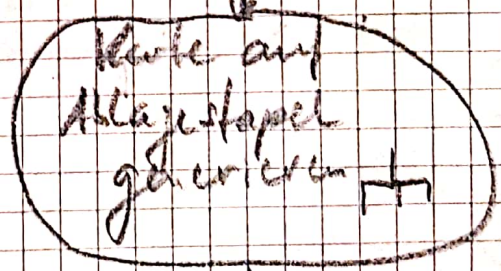 Karte auf
Ablagestapel
generieren